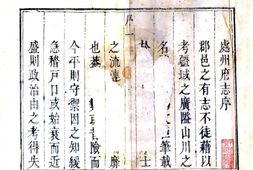 處州府志序
郡邑之有志不徒藉以
考疆域之廣隘山川之
名筆載
之流連
也蓋險而
今平則守禦因之知緩
急稽戶口或始衰而近
盛則政治由之考得失
序一